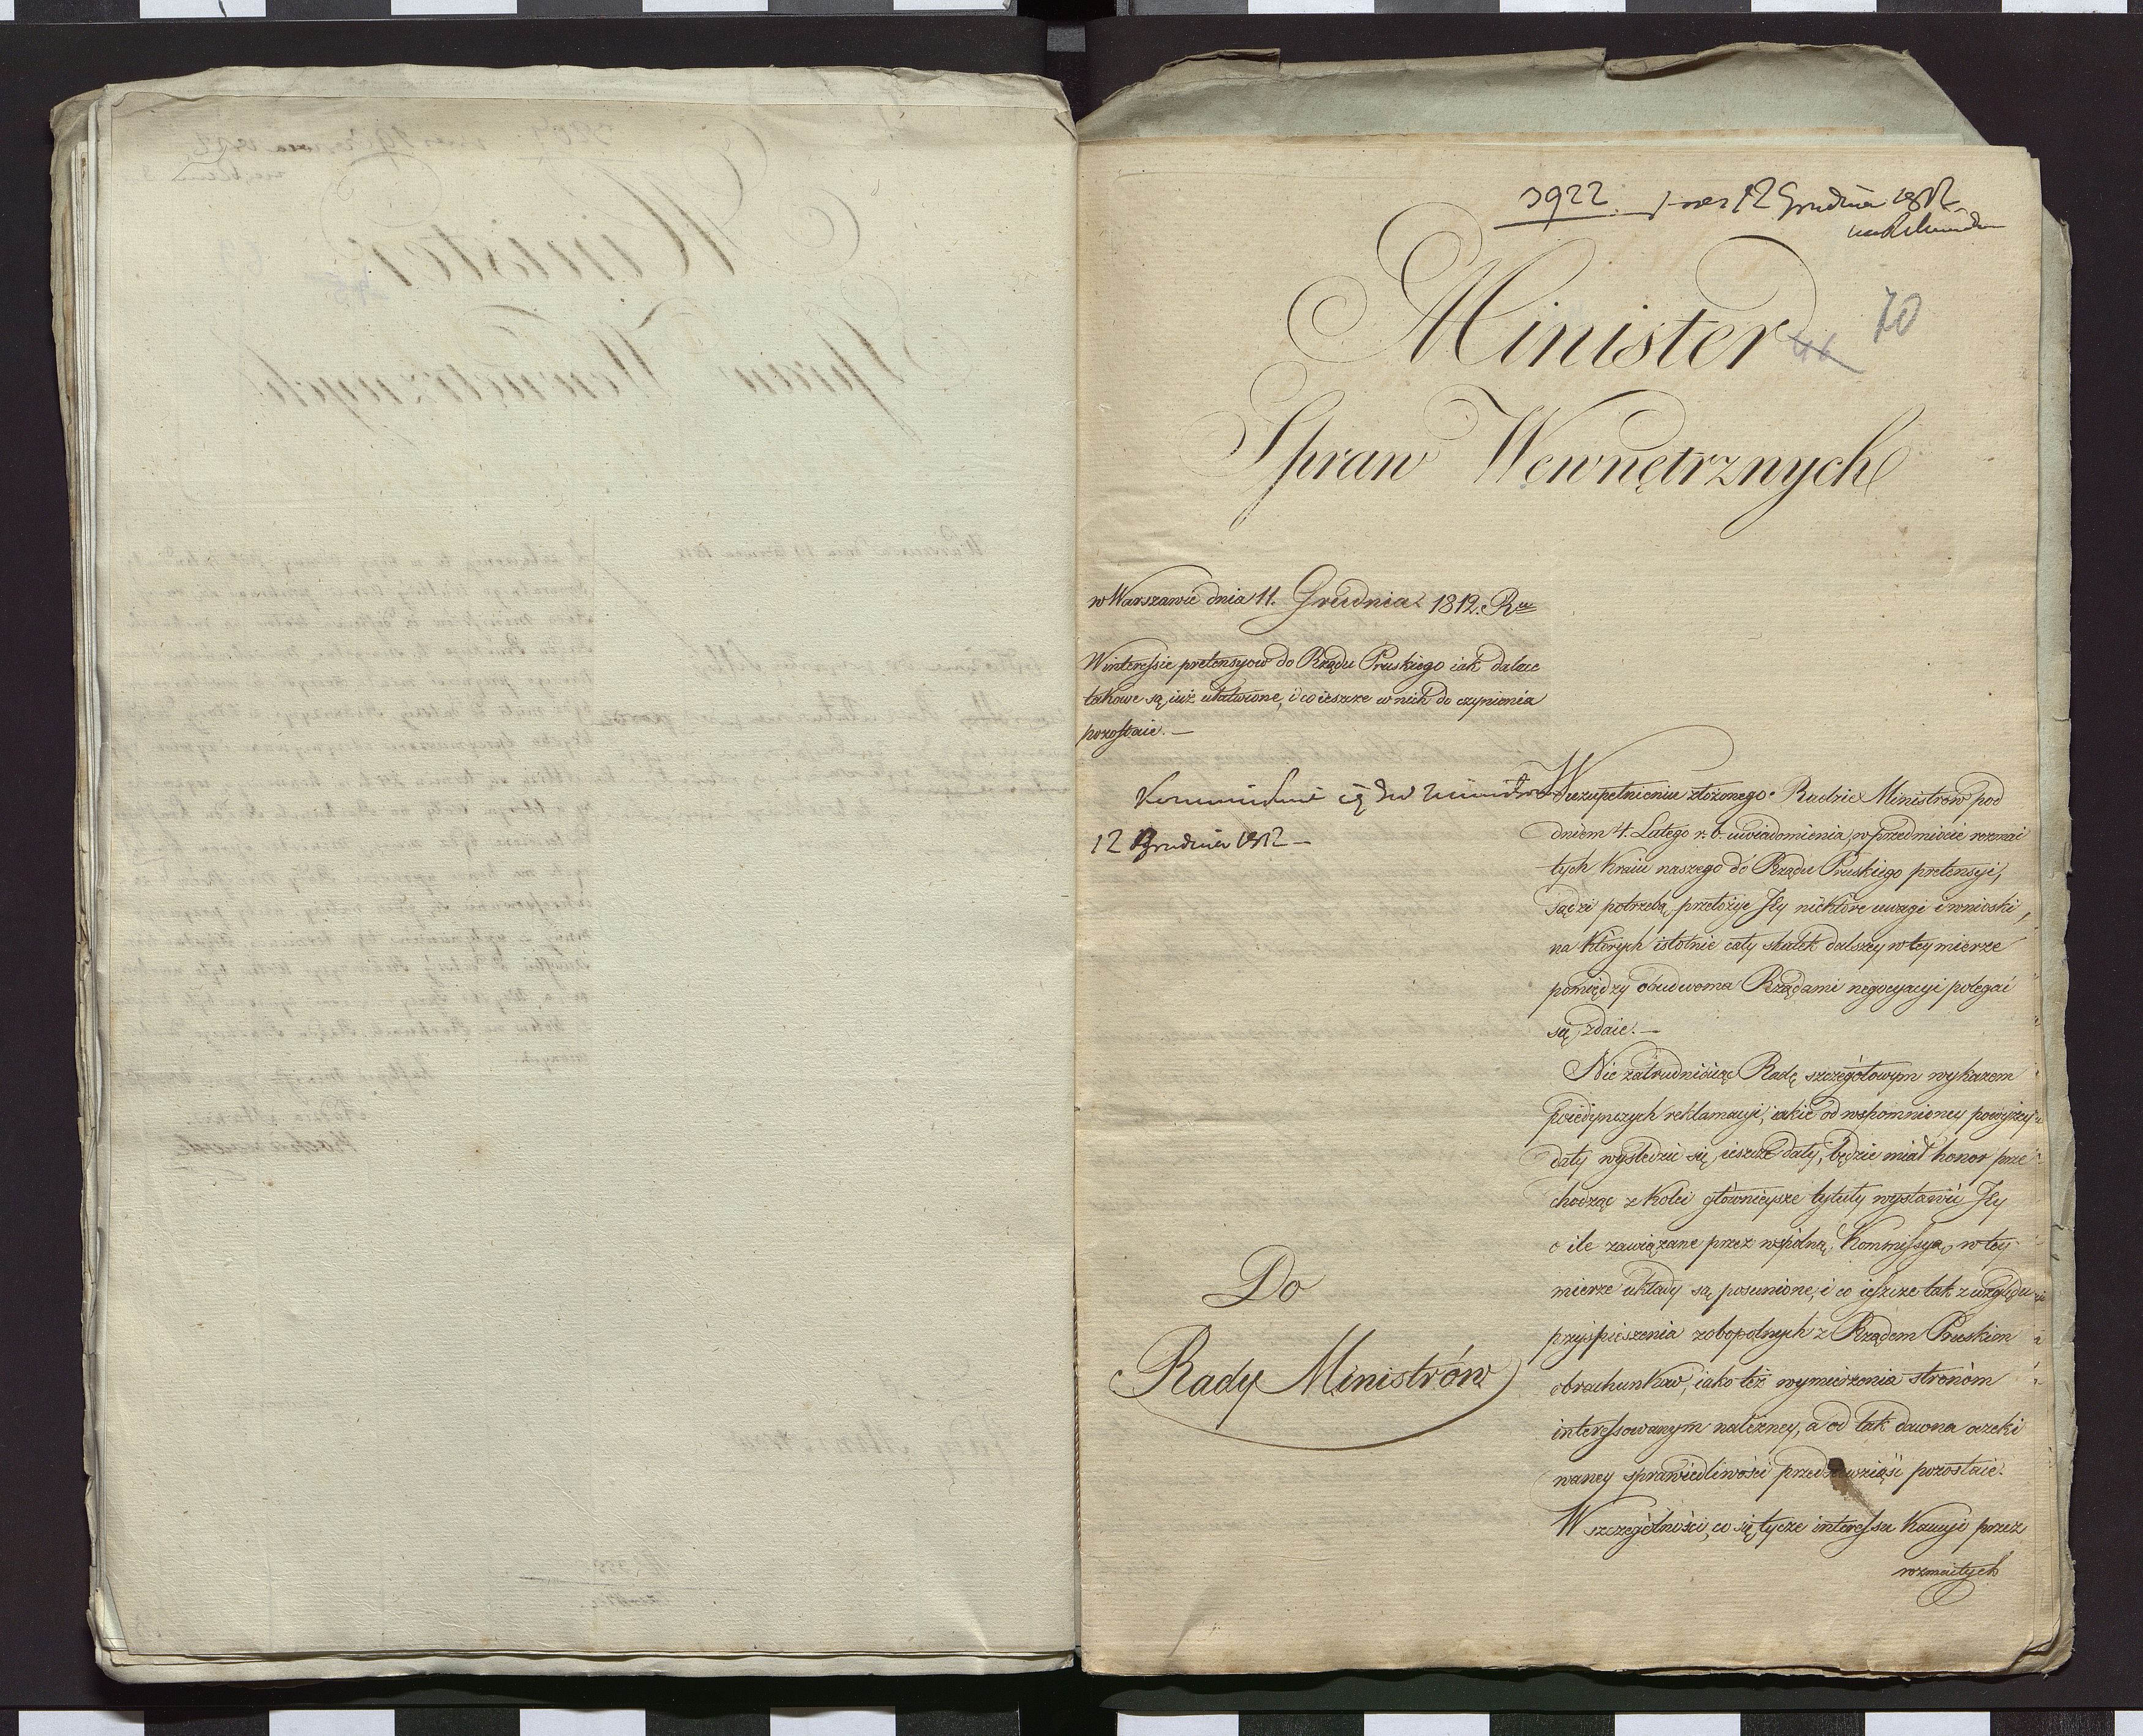 3922 12 Grudnia 1812
70
46
Minister
Spraw Wewnętrznych
w Warszawie dnia 11. Grudnia 1812. Ru
W interessie pretensyow do Rządu Pruskiego iak dalece
takowe są iuż ułatwione, i co ieszcze w nich do czynienia
pozostaie. —
12 Grudnia 1812 —
W uzupełnieniu złożonego Radzie Ministrów pod
dniem 4. Lutego r. b. uwiadomienia, w przedmiocie rozmai
tych kraiu naszego do Rządu Pruskiego pretensyi,
sądzi potrzebą, przełożyć Jey niektóre uwagi i wnioski,
na których istotnie cały skutek dalszey w tey mierze
pomiędzy obudwoma Rządami negocyacyi polegać
się, zdaie. —
Nie zatrudniaiąc Radę szczegółowym wykazem
poiedynczych reklamacyi, iakie od wspomnioney powyżey
daty wyśledzić się ieszcze dały, będzie miał honor prze
chodząc z kolei głównieysze tytuły wystawić Jey
o ile zawiązane przez wspólną Kommissyą, w tey
mierze układy są posunione, i co ieszcze tak z względu
przyspieszenia zobopolnych z Rządem Pruskim
obrachunków, iako też wymierzenia stronóm
interessowanym należney, a od tak dawna oczeki
waney sprawiedliwości przedsięwziąść pozostaie.
W szczególności, co się tycze interessu kaucyi przez
rozmaitych
Do
Rady Ministrów